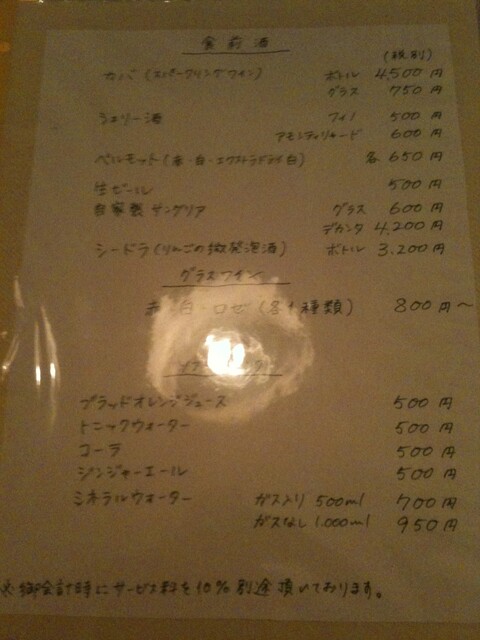 食前酒
(税別)
カバ (スパークリングワイン) ボトル 4,500円
グラス 750円
シェリー酒 フィノ 500円
アモンティリャード 600円
ベルモット (赤・白・エクストラドライ白) 各 650円
生ビール 500円
自家製 サングリア グラス 600円
デカンタ 4,200円
シードラ (りんごの微発泡酒) ボトル 3,200円
グラスワイン
赤・白・ロゼ (各1種類) 800円～
ブラッドオレンジジュース 500円
トニックウォーター 500円
コーラ 500円
ジンジャーエール 500円
ミネラルウォーター ガス入り 500ml 700円
ガスなし 1,000ml 950円
※御会計時にサービス料を10%別途頂いております。